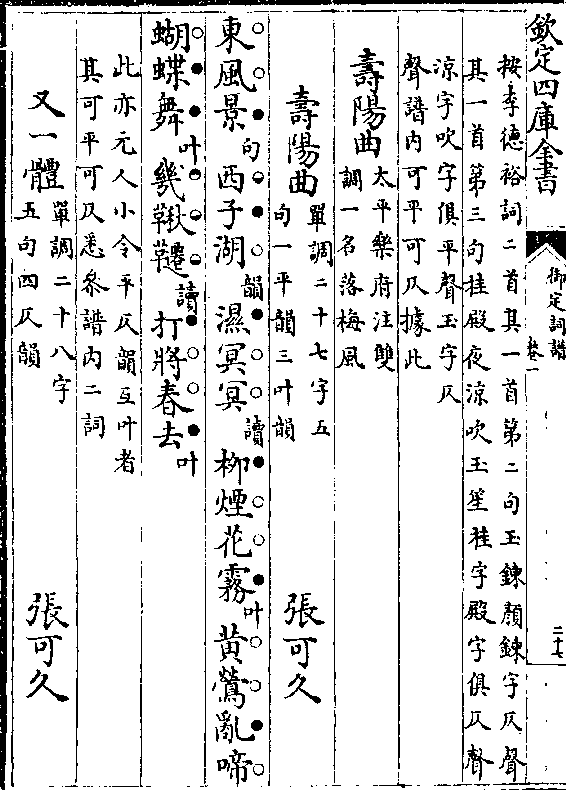 欽定四庫全書
御定詞譜
卷一
二十七
按李德裕詞二首其一首第二句玉鍊顏鍊字仄聲
其一首第三句桂殿夜涼吹玉笙桂字殿字俱仄聲
涼字吹字俱平聲玉字仄
聲譜内可平可仄據此
壽陽曲
太平樂府注雙
調一名落梅風
壽陽曲
單調二十七字五
句一平韻三叶韻
張可久
東風景句西子湖韻濕冥冥讀柳煙花霧叶黃鶯亂啼
蝴蝶舞叶幾鞦韆讀打將春去叶
此亦元人小令平仄韻互叶者
其可平可仄悉叅譜内二詞
又一體
單調二十八字
五句四仄韻
張可久